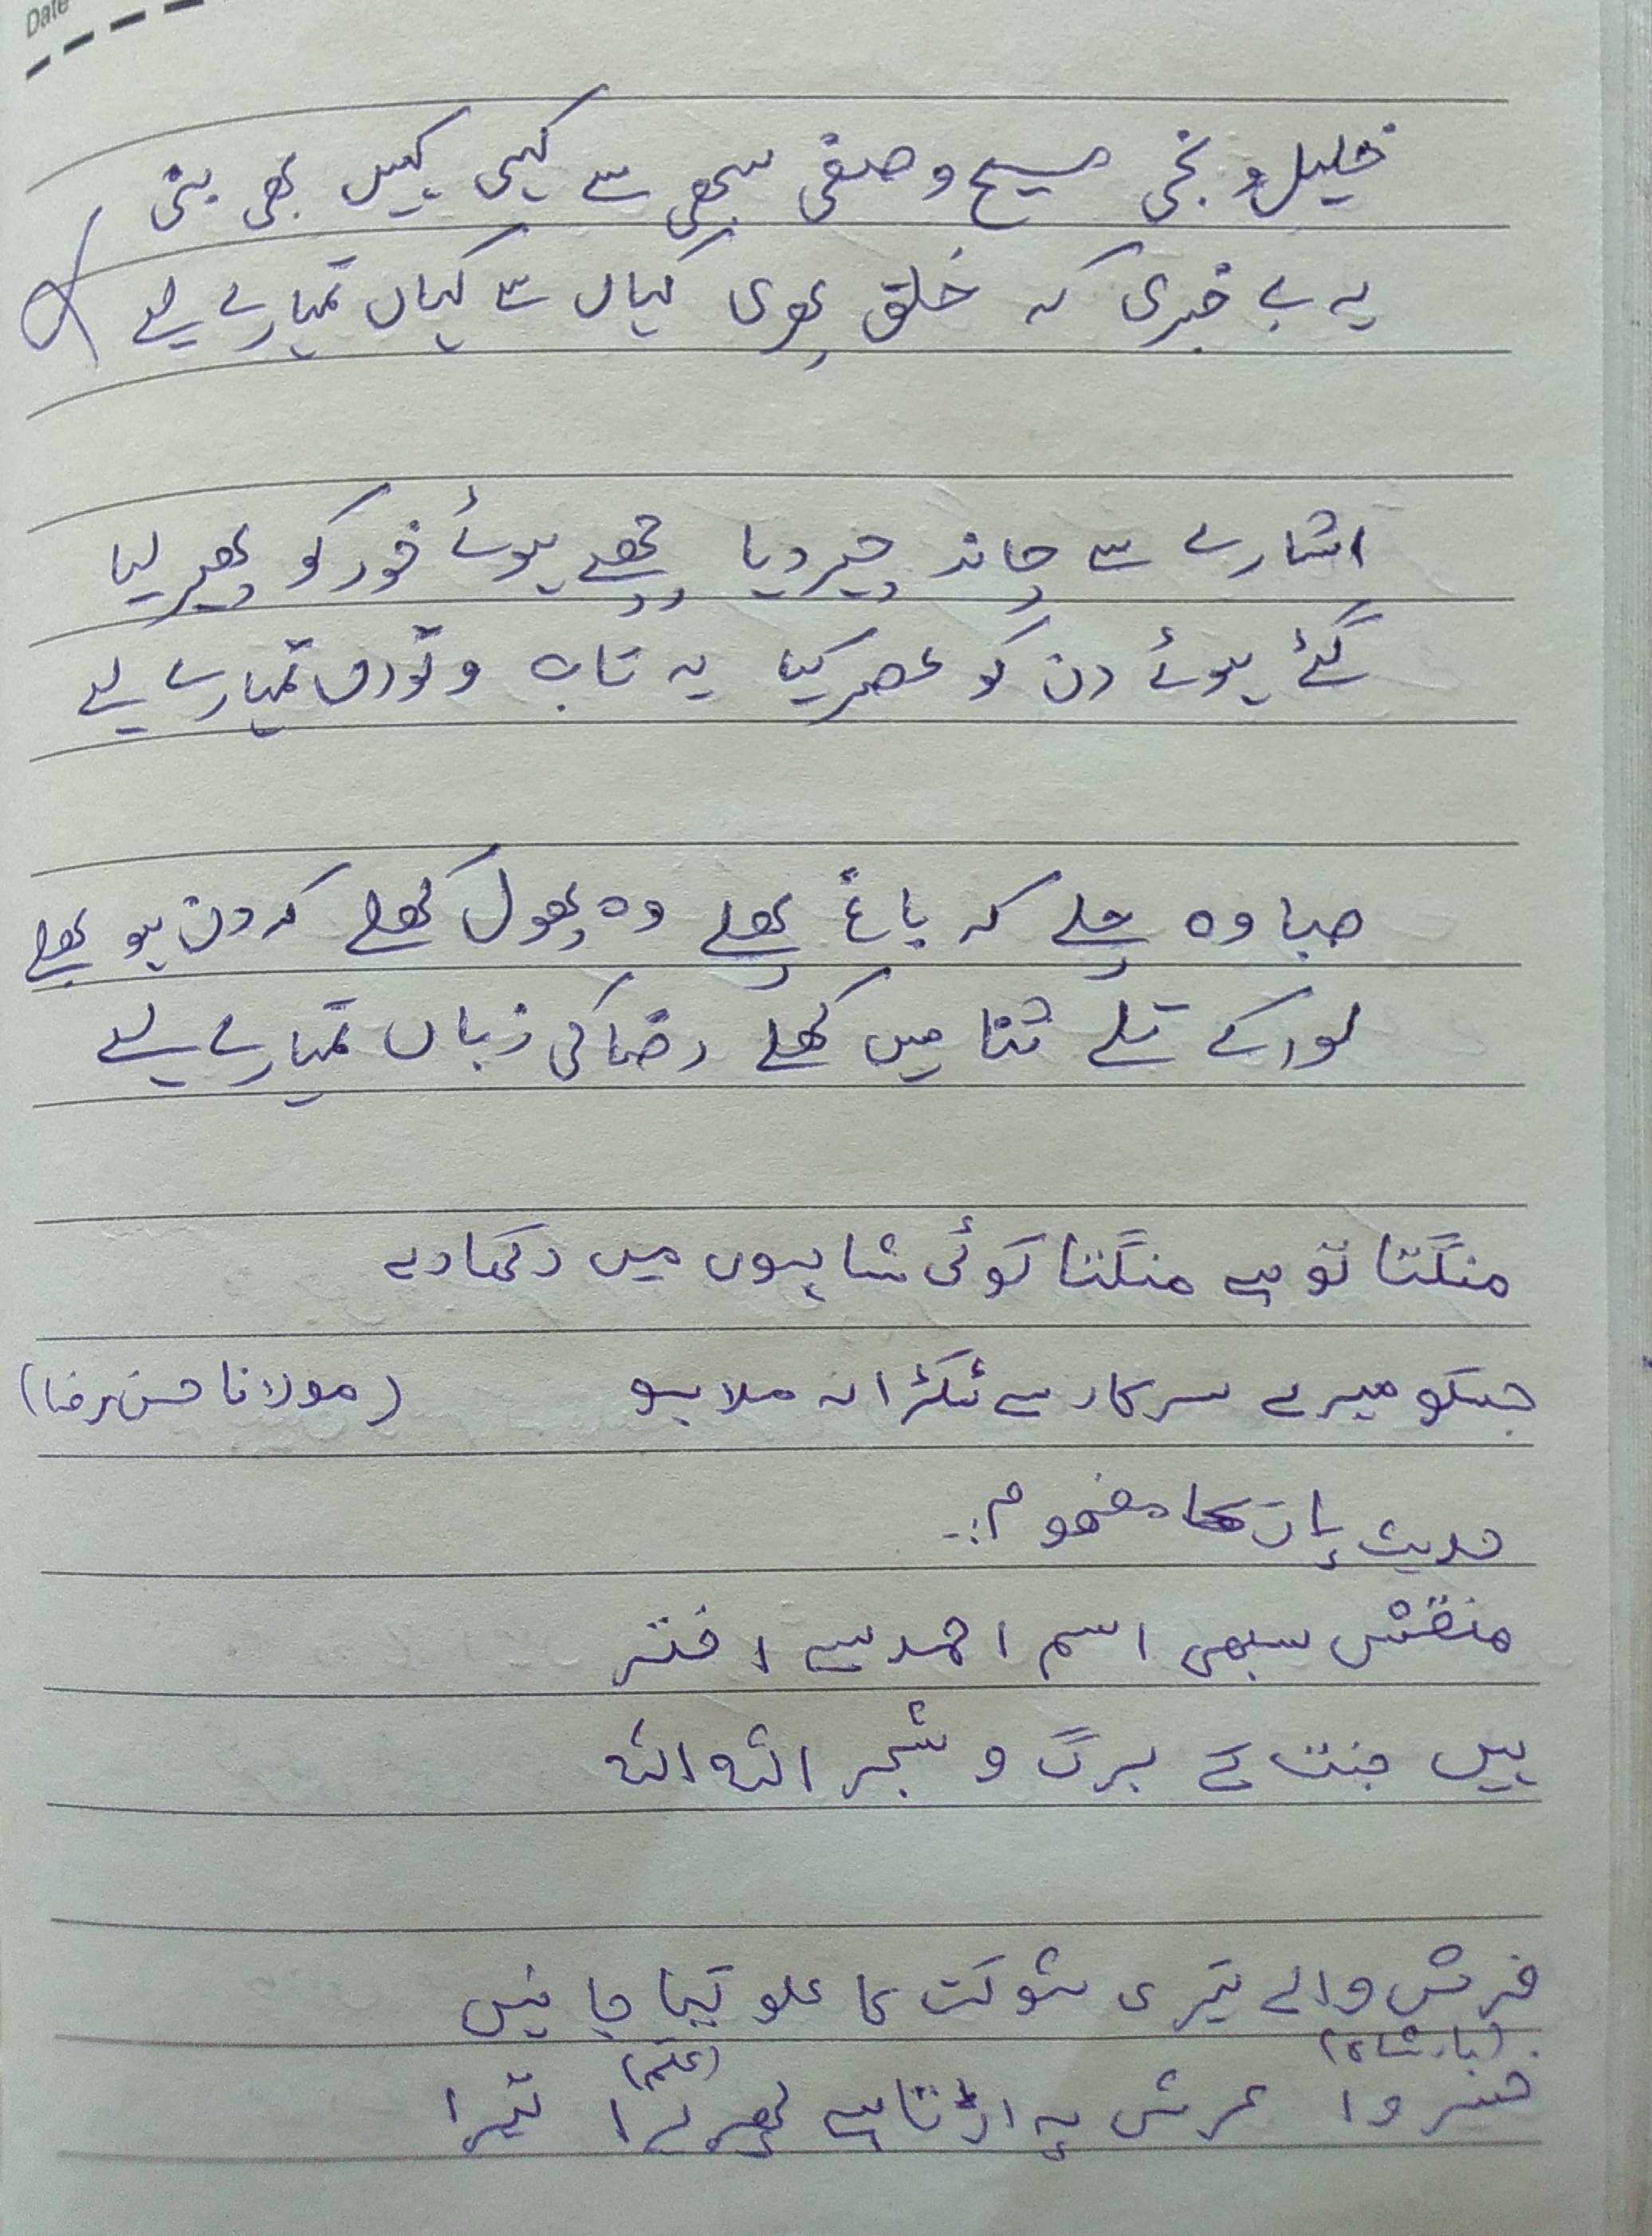 Date
خلیل و نجی مسیح و صفی سبھی سے کہی کہیں بھی بنی
یہ بے خبری کہ خلق پھری کہاں سے کہاں تمہارے لیے
اشارے سے چاند چیر دیا چھپے ہوئے خور کو پھیر لیا
گئے ہوئے دن کو عصر کیا یہ تاب و تواں تمہارے لیے
صبا وہ چلے کہ باغ پھلے وہ پھول کھلے کہ دن ہو بھلے
لوا کے تلے ثنا میں کھلے رضا کی زباں تمہارے لیے
منگتا تو ہے منگتا کوئی شاہوں میں دکھا دے
جسکو میرے سرکار سے ٹکڑا نہ ملا ہو (مولانا حسن رضا)
حدیث پاک کا مفہوم :-
منقش سبھی اسم احمد سے اختر
ہیں جنت کے برگ و شجر اللہ اللہ
فرش والے تیری شوکت کا علو کیا جانیں
(بادشاہ) (علم)
خسروا عرش پہ اڑتا ہے پھریرا تیرا